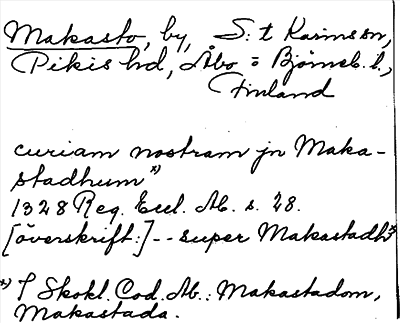 Makasto, by, S:t Karins sn,
Pikis hd, Åbo = Björneb. l.,
Finland
curiam nostram jn Maka-
stadhum *)
1328 Reg. Eccl. Ab. s. 28.
[överskrift:] -- super Makastadh3
*) I Skokl. Cod. Ab.: Makastadom,
Makastada.